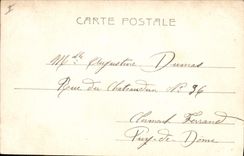 CARTE POSTALE
Mlle Augustine Dumas
Rue du Chateaudun No 36
Clermont Ferrand
Puy-de Dome